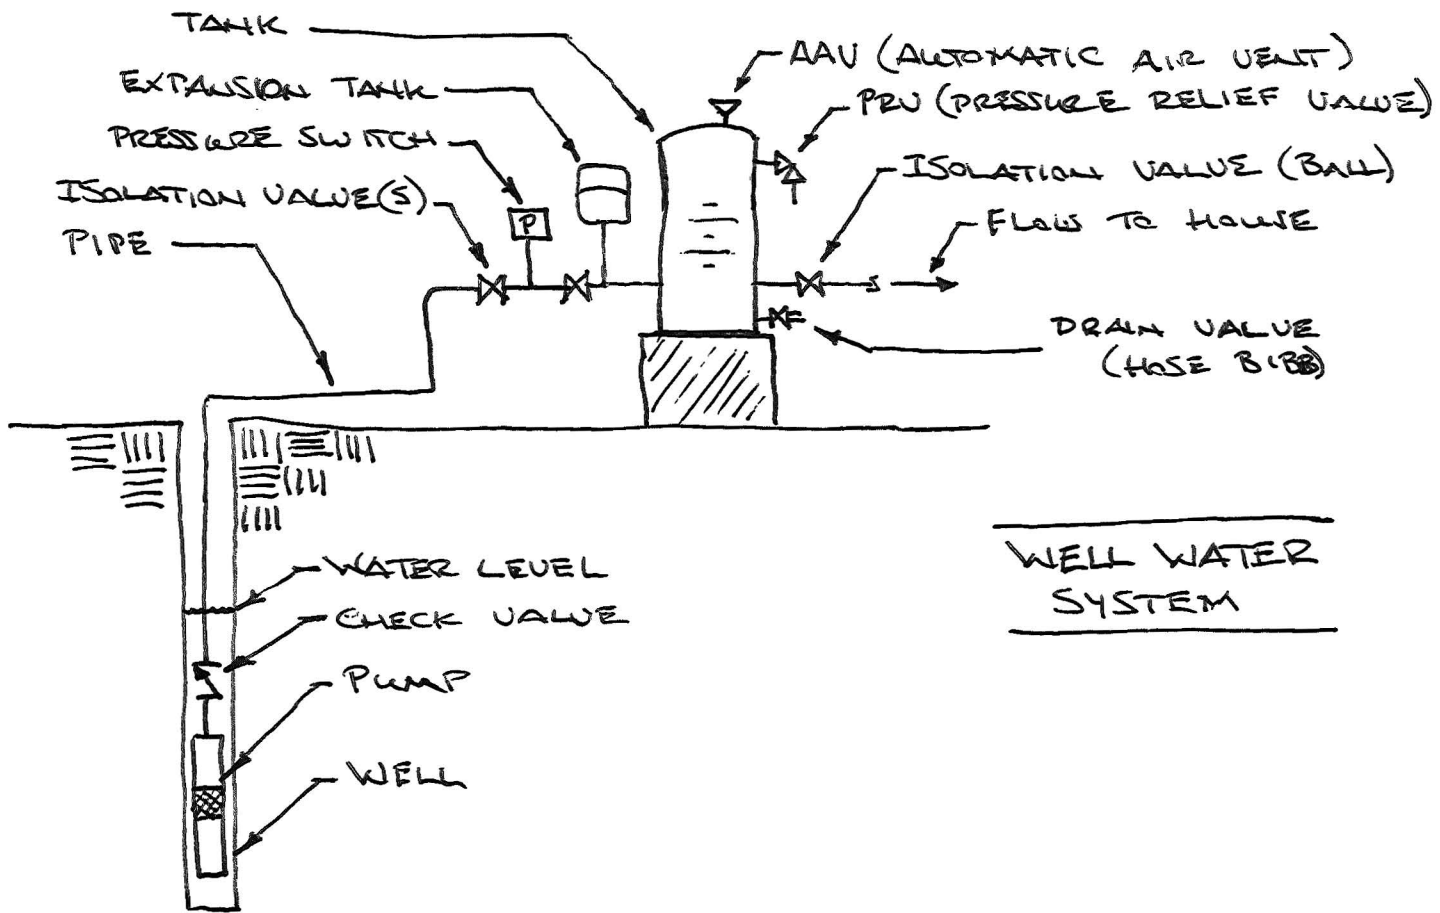 TANK
EXPANSION TANK
PRESSURE SWITCH
ISOLATION VALVE(S)
PIPE
P
AAV (AUTOMATIC AIR VENT)
PRV (PRESSURE RELIEF VALVE)
ISOLATION VALVE (BALL)
FLOW TO HOUSE
S
DRAIN VALVE
(HOSE BIBB)
WATER LEVEL
CHECK VALVE
PUMP
WELL
WELL WATER
SYSTEM